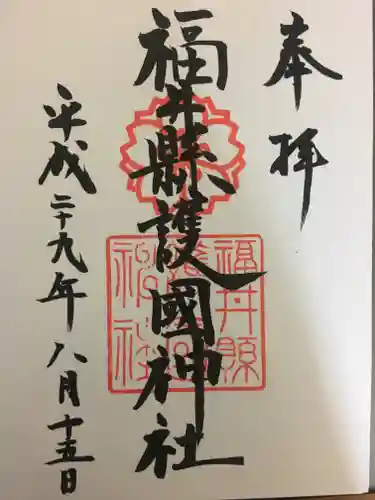 奉拝
福井縣護國神社
平成二十九年八月十五日
福井縣護國神社